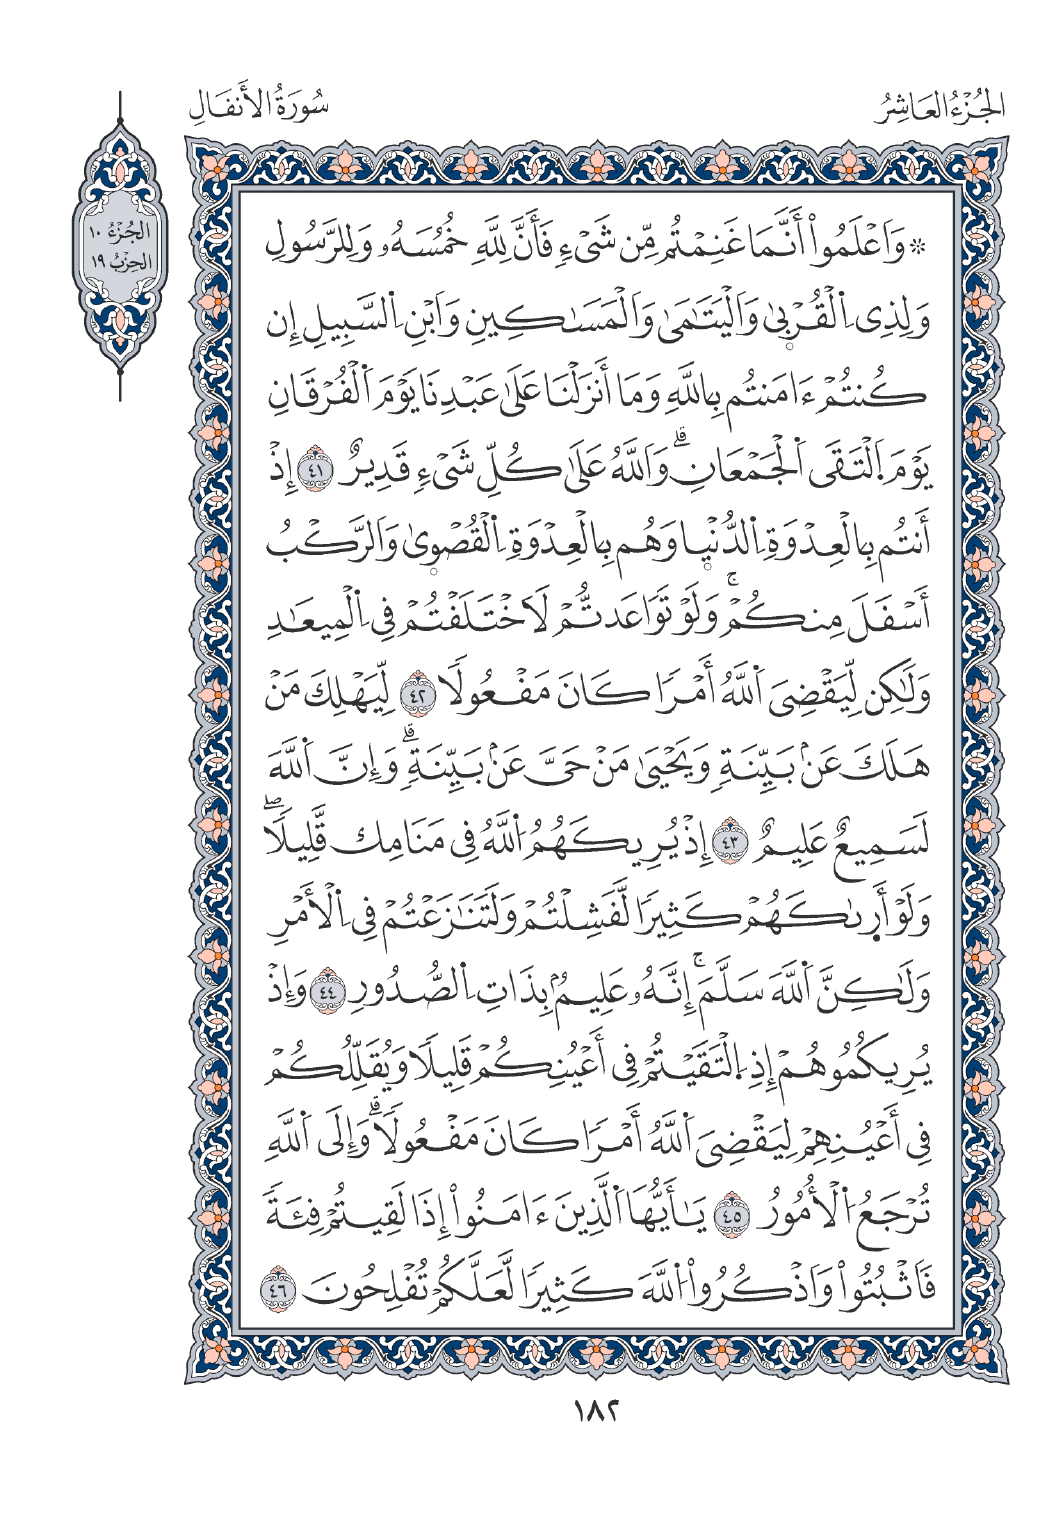 الجُزْءُ العَاشِرُ
سُورَةُ الأَنفَالِ
الجُزْءُ ١٠
الحِزْبُ ١٩
۞ وَاَعْلَمُواْ أَنَّمَا غَنِمْتُم مِّن شَيْءٖ فَأَنَّ لِلَّهِ خُمُسَهُۥ وَلِلرَّسُولِ
وَلِذِي اِ۬لْقُرْب۪ىٰ وَاَلْيَتَٰمَىٰ وَاَلْمَسَٰكِينِ وَابْنِ اِ۬لسَّبِيلِ إِن
كُنتُمْ ءَامَنتُم بِاللَّهِ وَمَا أَنزَلْنَا عَلَىٰ عَبْدِنَا يَوْمَ اَ۬لْفُرْقَانِ
يَوْمَ اَ۪لْتَقَى اَ۬لْجَمْعَانِۗ وَاَللَّهُ عَلَىٰ كُلِّ شَيْءٖ قَدِيرٌ ٤١ إِذْ
أَنتُم بِالْعِدْوَةِ اِ۬لدُّنْي۪ا وَهُم بِالْعِدْوَةِ اِ۬لْقُصْو۪ىٰ وَاَلرَّكْبُ
أَسْفَلَ مِنكُمْۚ وَلَوْ تَوَاعَدتُّمْ لَاَخْتَلَفْتُمْ فِي اِ۬لْمِيعَٰدِ
وَلَٰكِن لِّيَقْضِيَ اَ۬للَّهُ أَمْرٗا كَانَ مَفْعُولٗا ٤٢ لِّيَهْلِكَ مَنْ
هَلَكَ عَنۢ بَيِّنَةٖ وَيَحْيَىٰ مَنْ حَيَّ عَنۢ بَيِّنَةٖۗ وَإِنَّ اَ۬للَّهَ
لَسَمِيعٌ عَلِيمٌ ٤٣ إِذْ يُرِيكَهُمُ اُ۬للَّهُ فِي مَنَامِك قَّلِيلٗاۖ
وَلَوْ أَر۪ىٰكَهُمْ كَثِيرٗا لَّفَشِلْتُمْ وَلَتَنَٰزَعْتُمْ فِي اِ۬لْأَمْرِ
وَلَٰكِنَّ اَ۬للَّهَ سَلَّمَۚ إِنَّهُۥ عَلِيمُۢ بِذَاتِ اِ۬لصُّدُورِ ٤٤ وَإِذْ
يُرِيكُمُوهُمْ إِذِ اِ۪لْتَقَيْتُمْ فِي أَعْيُنِكُمْ قَلِيلٗا وَيُقَلِّلُكُمْ
فِي أَعْيُنِهِمْ لِيَقْضِيَ اَ۬للَّهُ أَمْرٗا كَانَ مَفْعُولٗاۗ وَإِلَى اَ۬للَّهِ
تُرْجَعُ اُ۬لْأُمُورُ ٤٥ يَٰأَيُّهَا اَ۬لَّذِينَ ءَامَنُواْ إِذَا لَقِيتُمْ فِئَةٗ
فَاَثْبُتُواْ وَاَذْكُرُواْ اُ۬للَّهَ كَثِيرٗا لَّعَلَّكُمْ تُفْلِحُونَ ٤٦
١٨٢